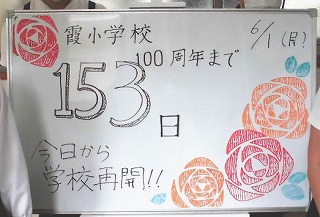 霞小学校
6/1(月)
100周年まで
153
日
今日から
学校再開!!